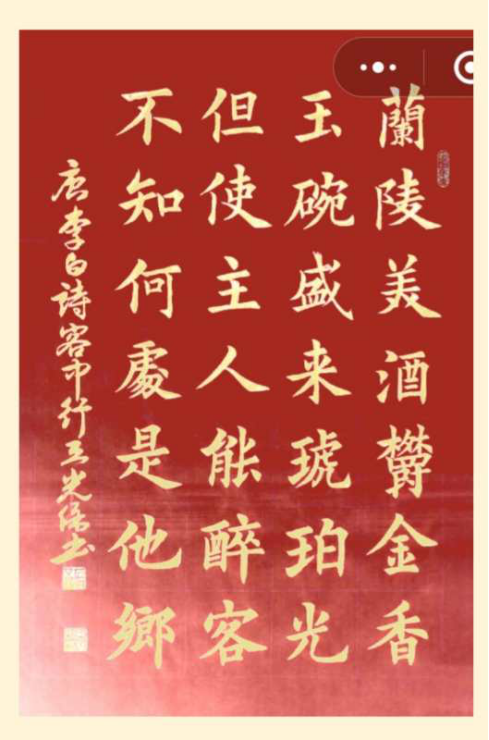 蘭陵美酒欎金香
玉碗盛来琥珀光
但使主人能醉客
不知何處是他鄉
唐李白詩客中行王光信书